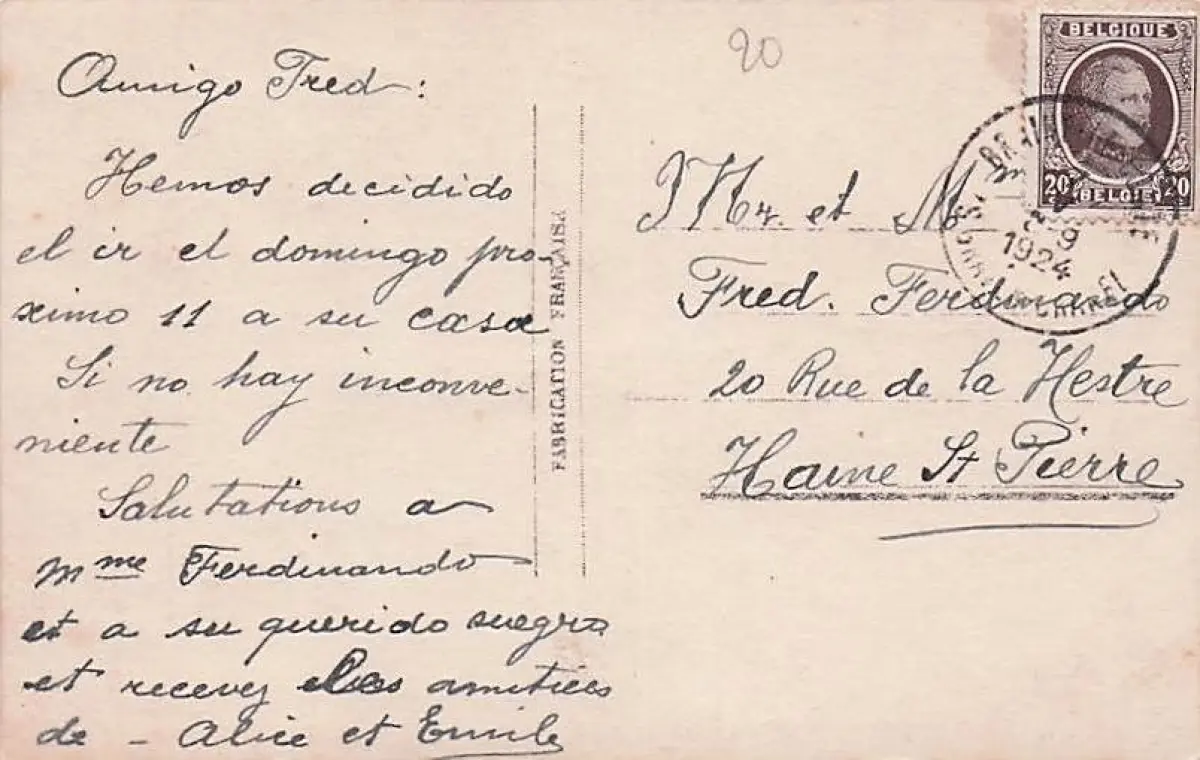 Amigo Fred:
Hemos decidido
el ir el domingo pro-
ximo 11 a su casa
Si no hay inconve-
niente
Salutations a
Mme Ferdinando
et a su querido suegro
et recevez les amitiés
de - Alice et Emile
FABRICATION FRANÇAISE
20
BELGIQUE
20 20
BELGIË
9
1924
Mr. et Mme
Fred. Ferdinando
20 Rue de la Hestre
Haine St Pierre